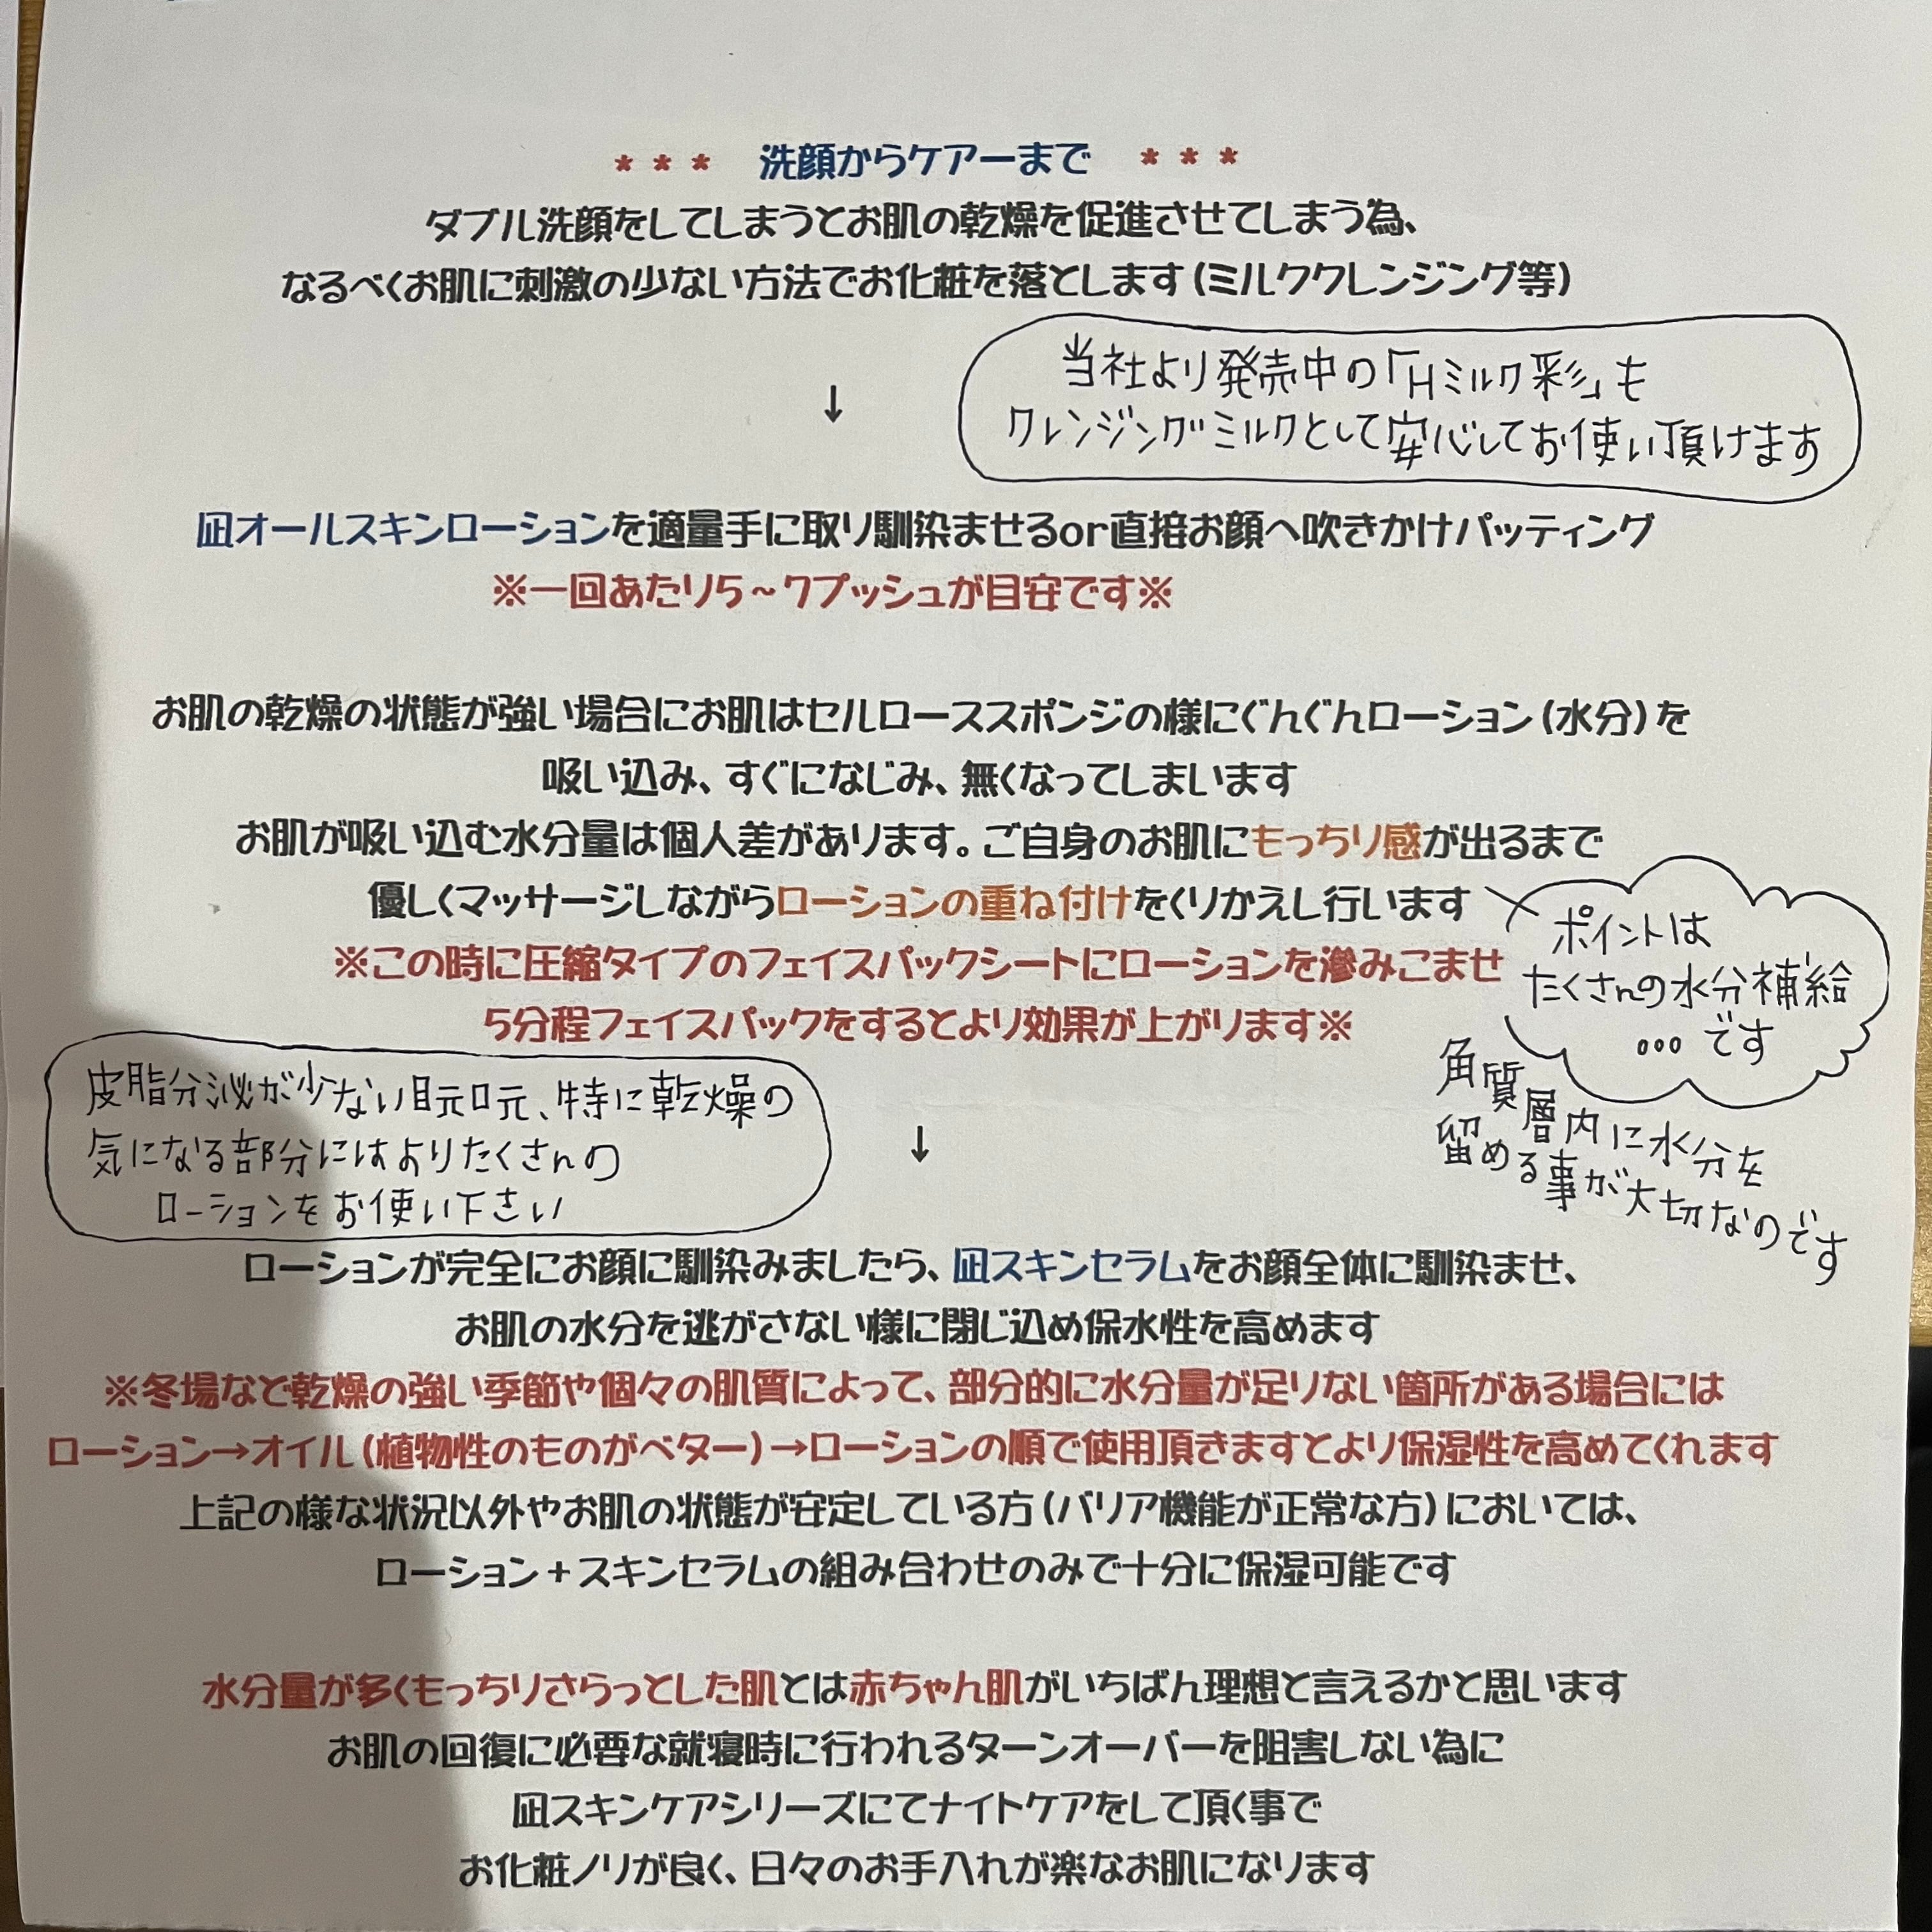 *** 洗顔からケアーまで ***
ダブル洗顔をしてしまうとお肌の乾燥を促進させてしまう為、
なるべくお肌に刺激の少ない方法でお化粧を落とします(ミルククレンジング等)
当社より発売中の「Hミルク彩」も
クレンジングミルクとして安心してお使い頂けます
↓
凪オールスキンローションを適量手に取り馴染ませるor直接お顔へ吹きかけパッティング
※一回あたり5～7プッシュが目安です※
お肌の乾燥の状態が強い場合にお肌はセルローススポンジの様にぐんぐんローション(水分)を
吸い込み、すぐになじみ、無くなってしまいます
お肌が吸い込む水分量は個人差があります。ご自身のお肌にもっちり感が出るまで
優しくマッサージしながらローションの重ね付けをくりかえし行います
※この時に圧縮タイプのフェイスパックシートにローションを滲みこませ
5分程フェイスパックをするとより効果が上がります※
ポイントは
たくさんの水分補給
...です
角質層内に水分を
留める事が大切なのです
皮脂分泌が少ない目元口元、特に乾燥の
気になる部分にはよりたくさんの
ローションをお使い下さい
↓
ローションが完全にお顔に馴染みましたら、凪スキンセラムをお顔全体に馴染ませ、
お肌の水分を逃がさない様に閉じ込め保水性を高めます
※冬場など乾燥の強い季節や個々の肌質によって、部分的に水分量が足りない箇所がある場合には
ローション→オイル(植物性のものがベター)→ローションの順で使用頂きますとより保湿性を高めてくれます
上記の様な状況以外やお肌の状態が安定している方(バリア機能が正常な方)においては、
ローション+スキンセラムの組み合わせのみで十分に保湿可能です
水分量が多くもっちりさらっとした肌とは赤ちゃん肌がいちばん理想と言えるかと思います
お肌の回復に必要な就寝時に行われるターンオーバーを阻害しない為に
凪スキンケアシリーズにてナイトケアをして頂く事で
お化粧ノリが良く、日々のお手入れが楽なお肌になります